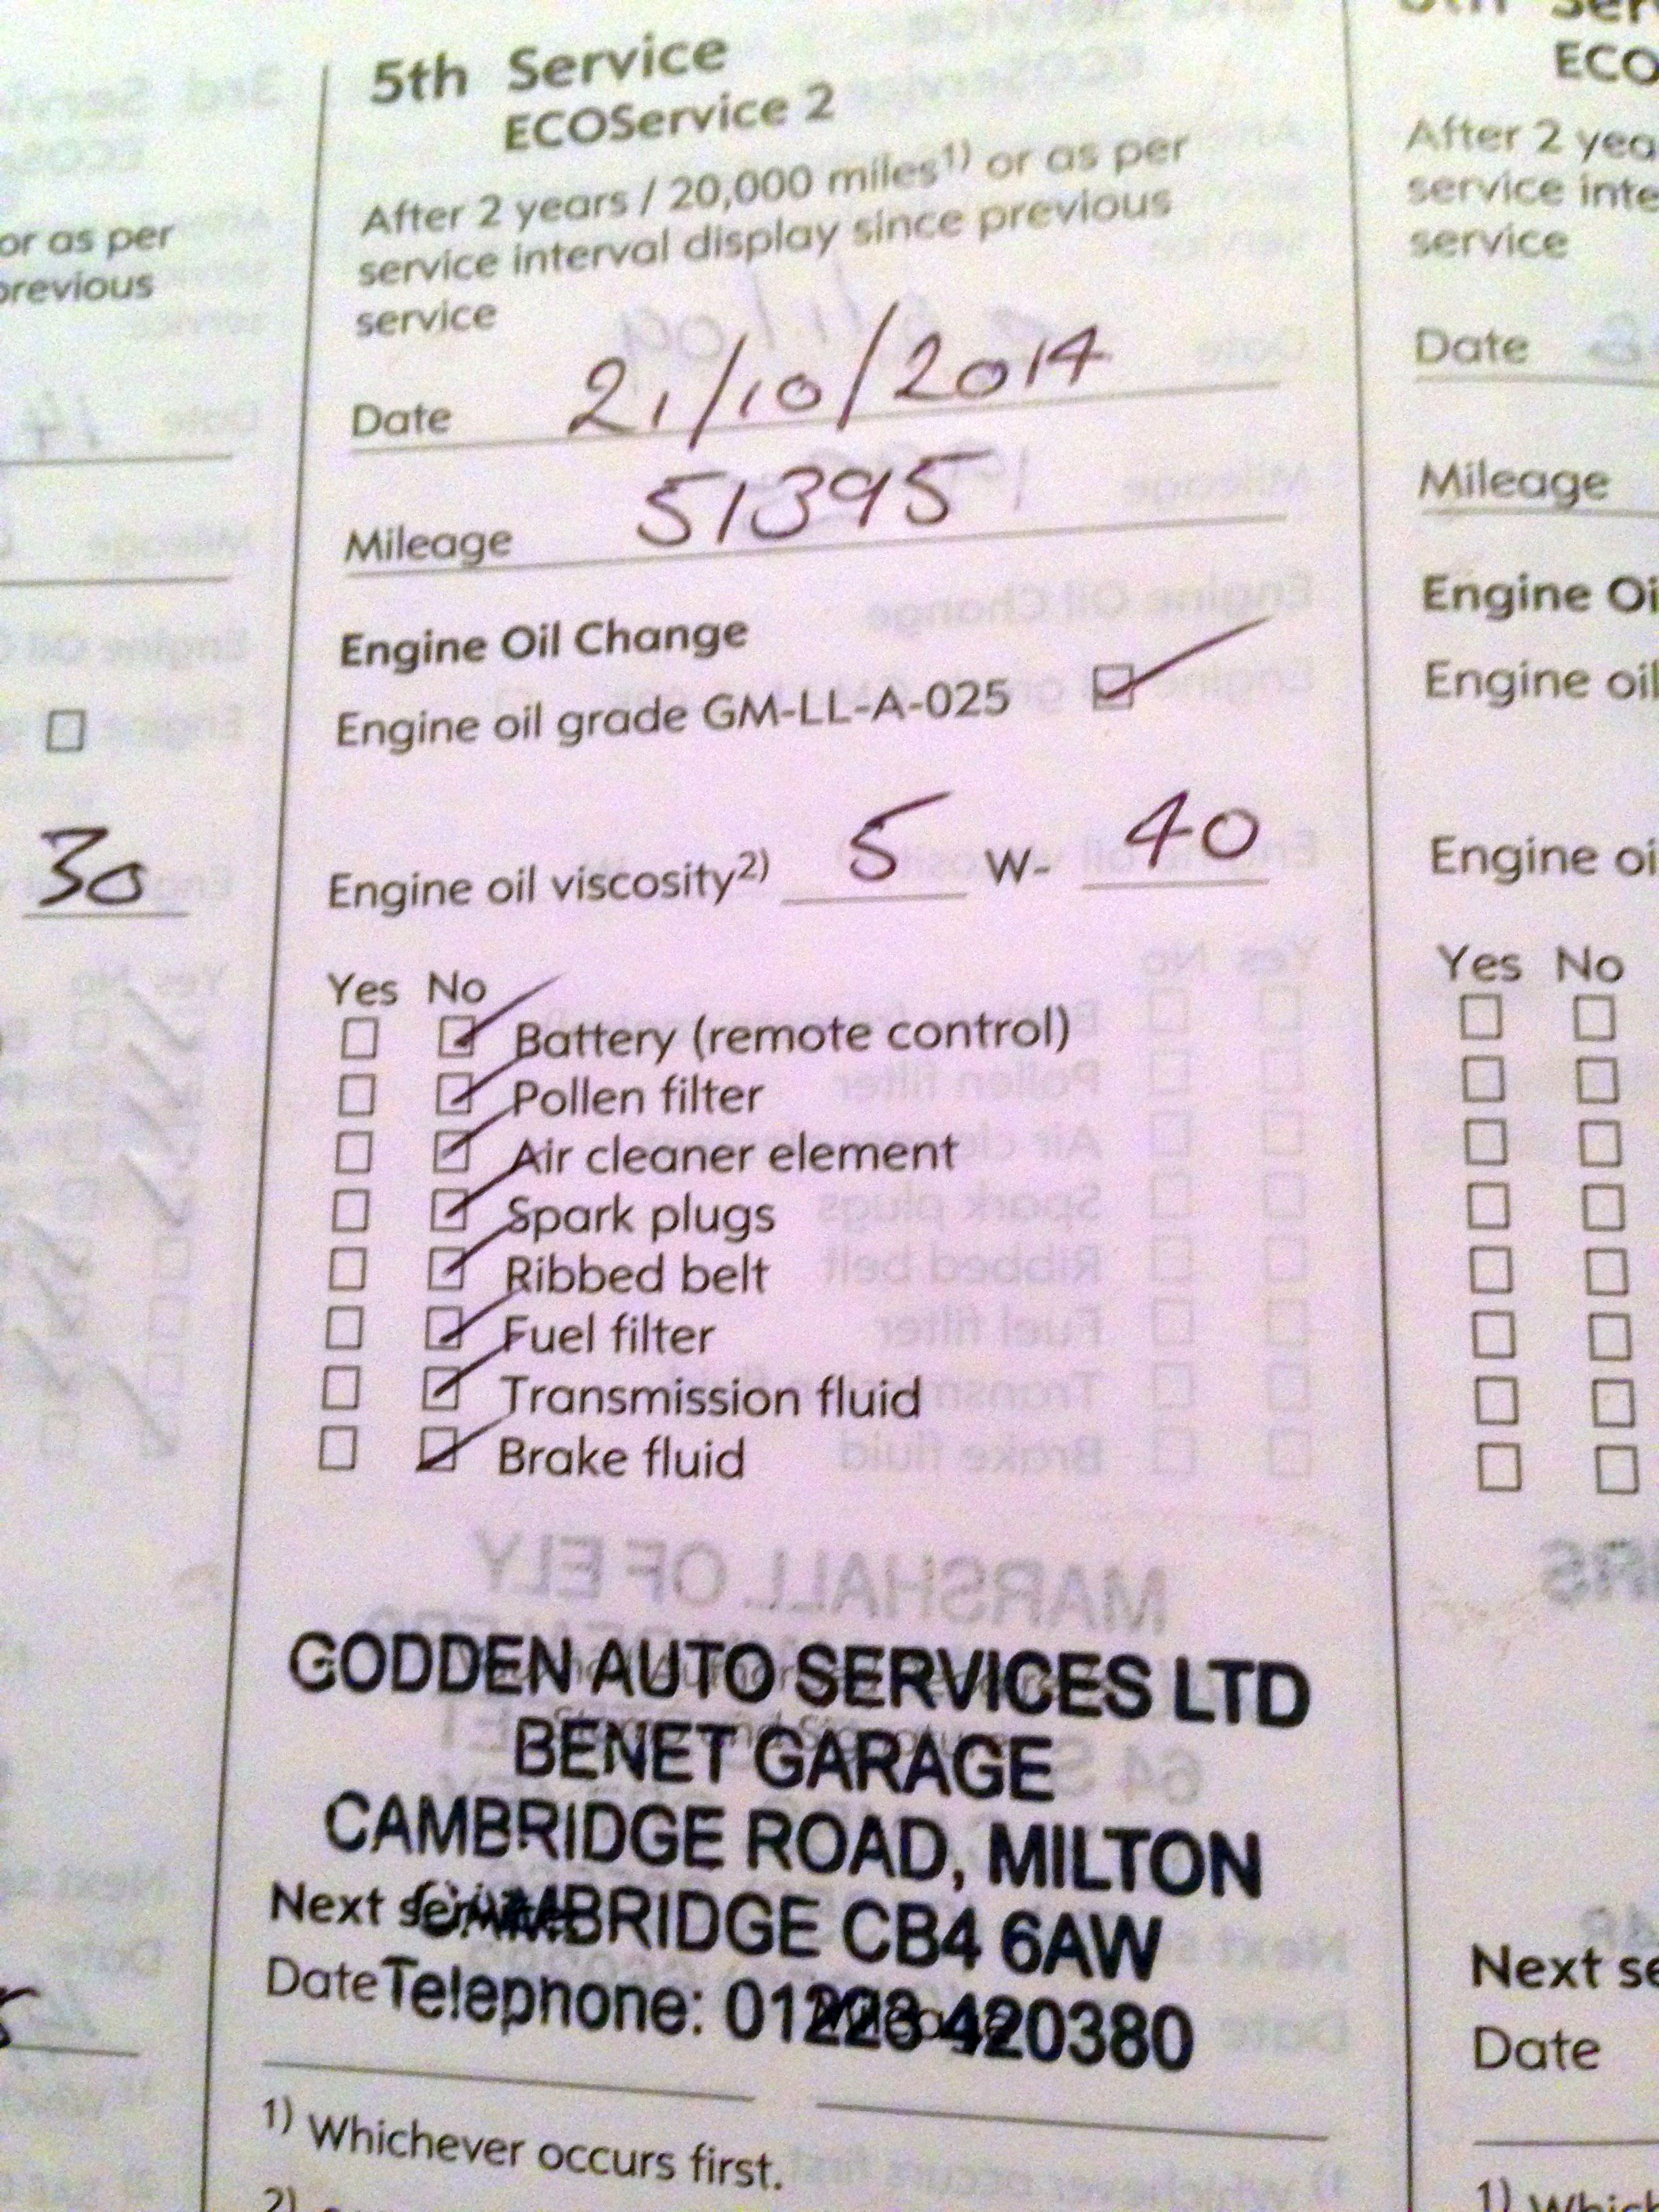 5th Service
ECOService 2
After 2 years / 20,000 miles1) or as per
service interval display since previous
service
Date 21/10/2014
Mileage 51395
Engine Oil Change
Engine oil grade GM-LL-A-025
Engine oil viscosity2) 5 W- 40
Yes No
Battery (remote control)
Pollen filter
Air cleaner element
Spark plugs
Ribbed belt
Fuel filter
Transmission fluid
Brake fluid
GODDEN AUTO SERVICES LTD
BENET GARAGE
CAMBRIDGE ROAD, MILTON
Next service
CAMBRIDGE CB4 6AW
Date
Telephone: 01223 420380
Mileage
1) Whichever occurs first.
2)
or as per
previous
30
ECO
After 2
service
service
Date
Mileage
Engine
Engine
Engine
Yes No
Next
Date
1)